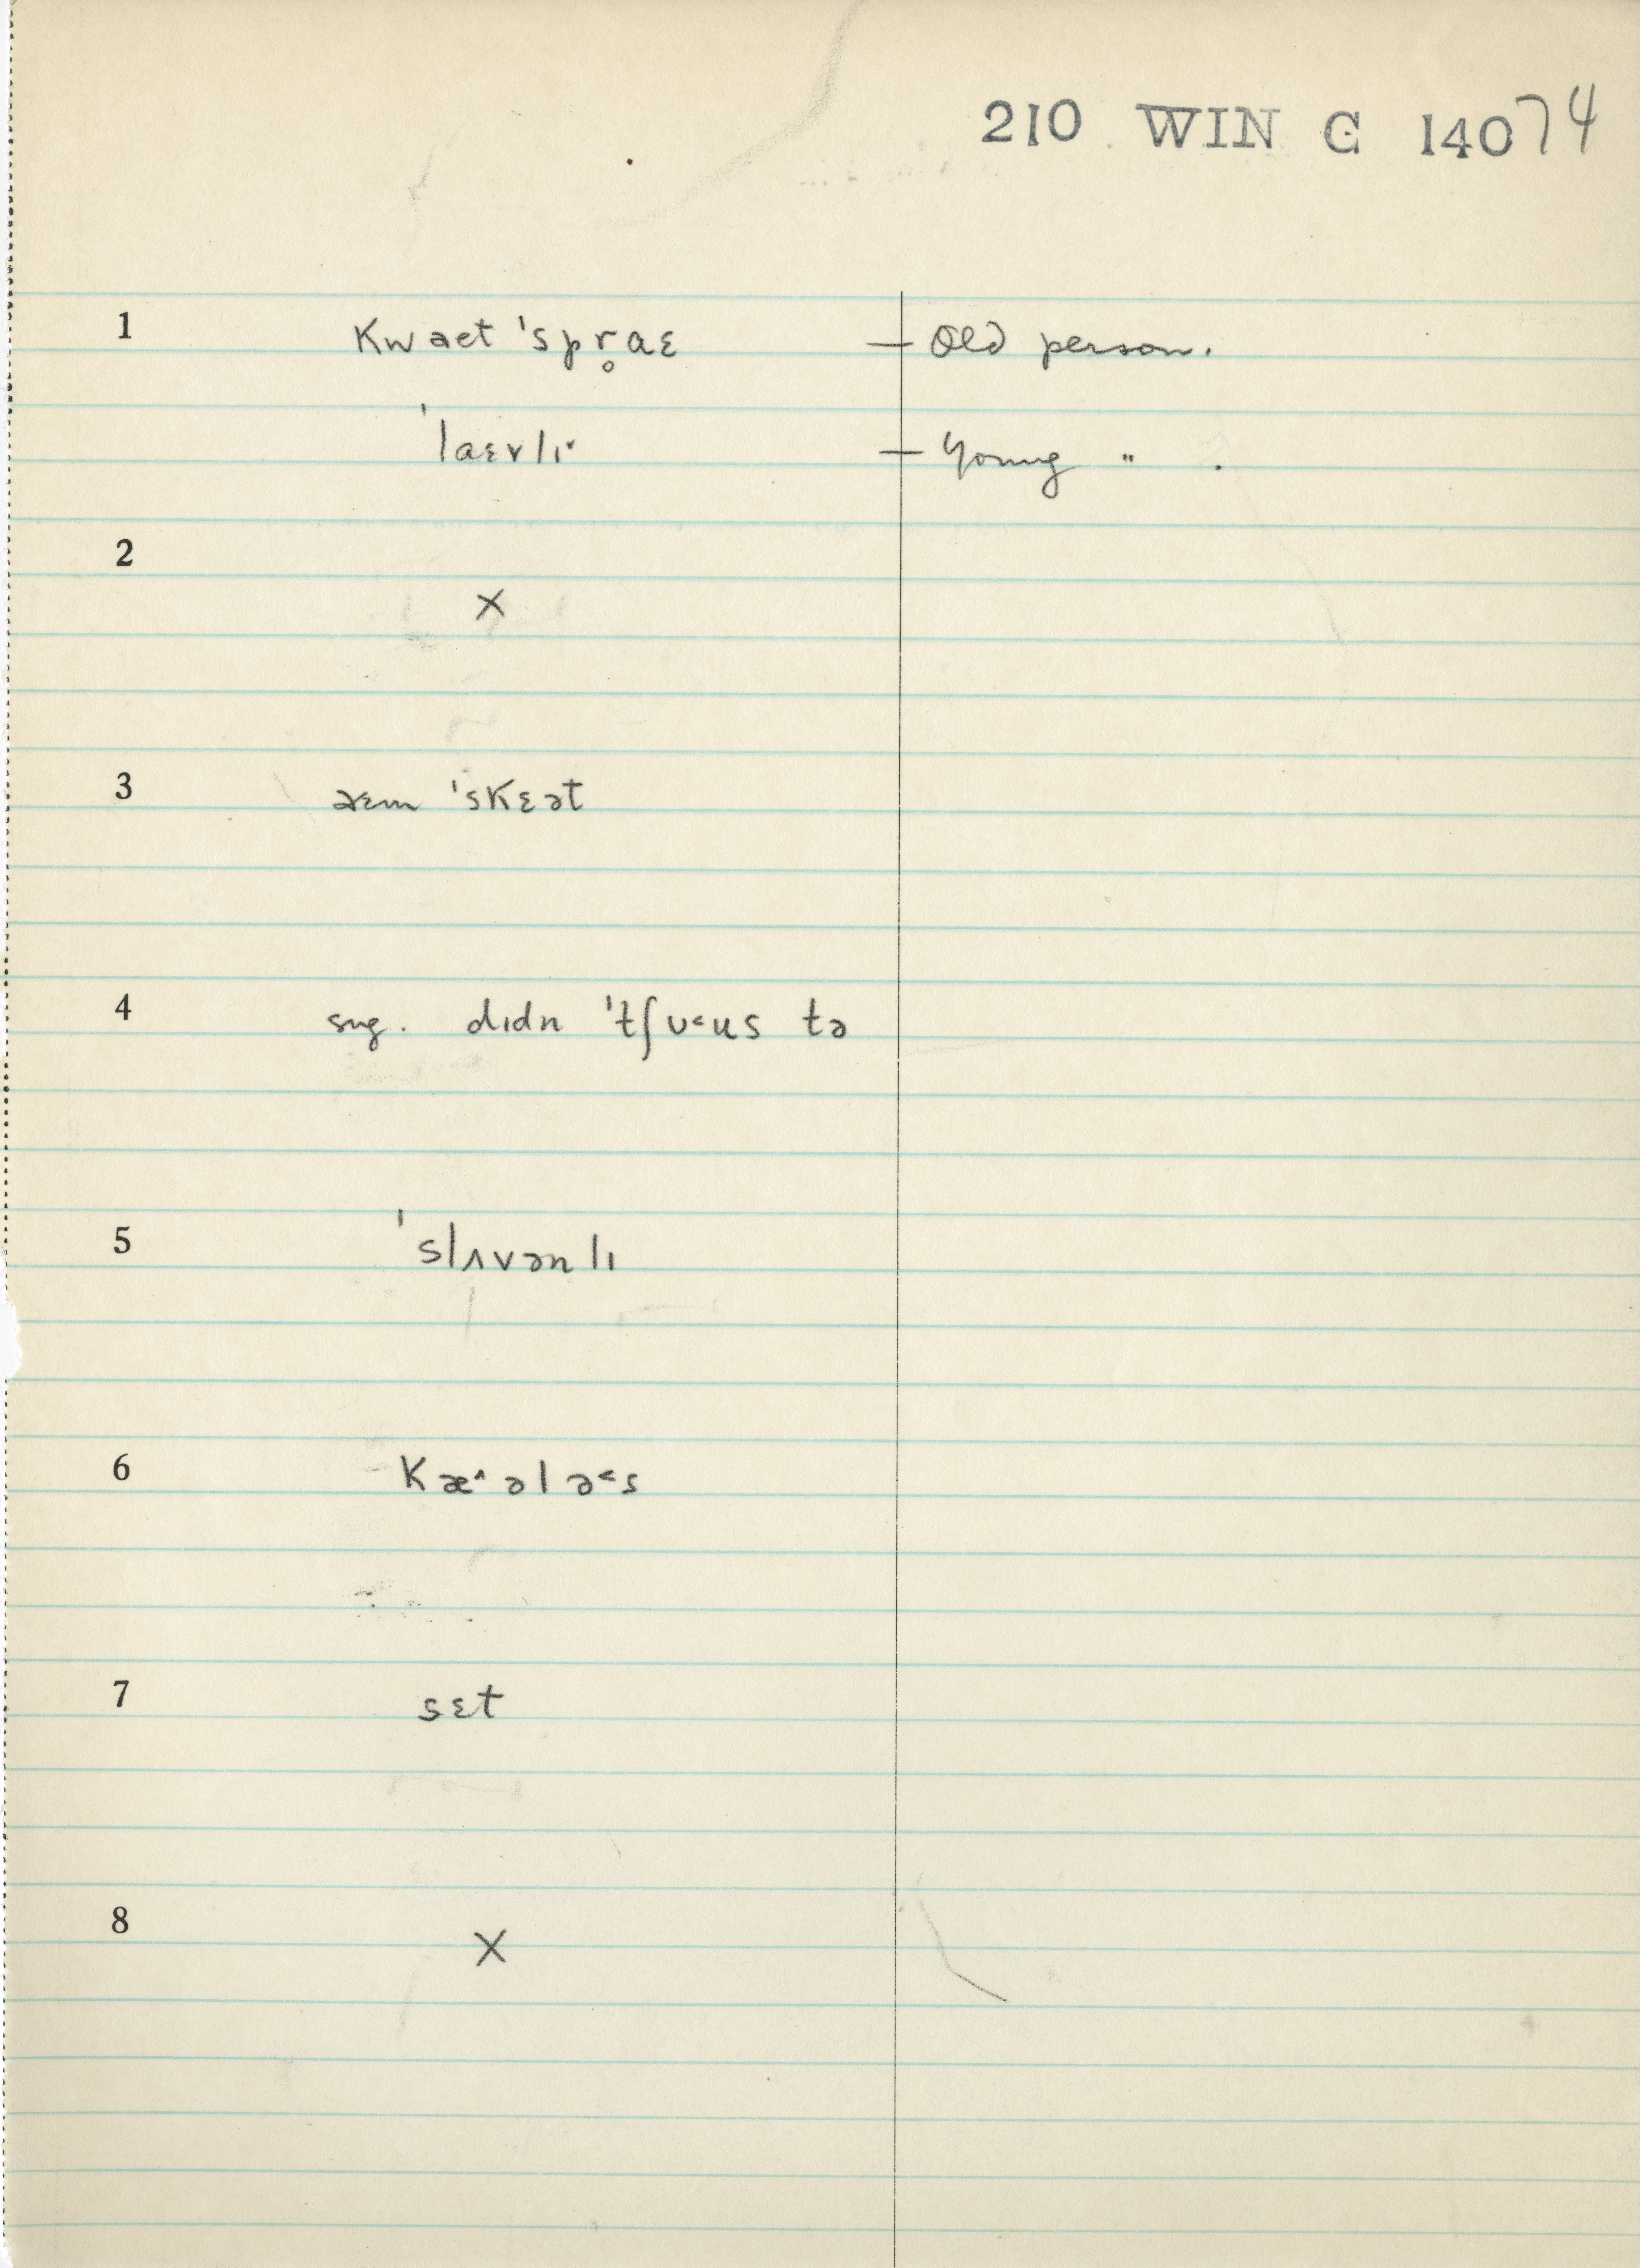 210 WIN G 14074
1 kwaet ˈspr̥aɛ — Old person.
ˈlaɛvlɪ˅ — Young " .
2
×
3 aɛm ˈskɛət
4 sug. dɪdn ˈtʃʊ˂us tə
5 ˈslʌvənlɪ
6 kæ˄ələ˂s
7 sɛt
8
×